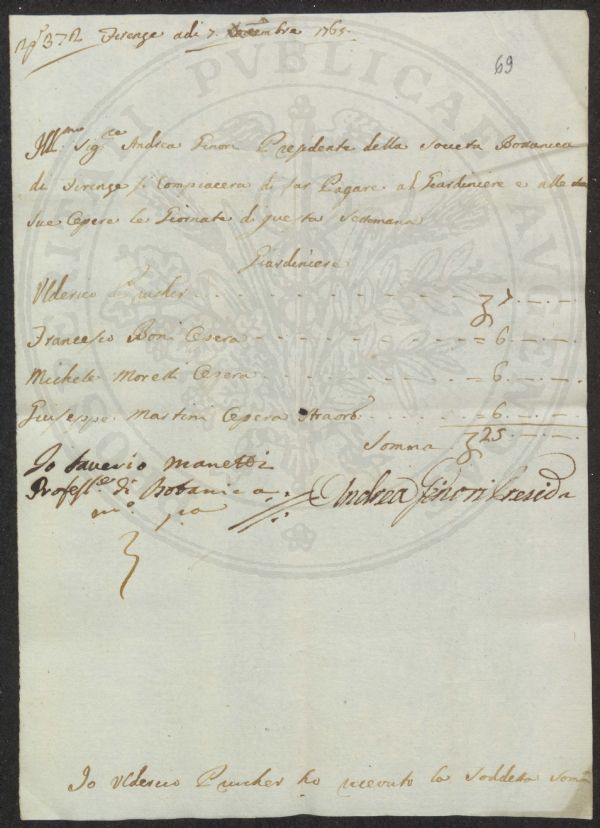 Firenze adi 7. Xcembre 1765.
69
Ill.mo Sig.re Andrea Ginori Presidente della Società Botanica
di Firenze si Compiacera di far Pagare al Giardiniere e alle
sue Opere le Giornate di questa Settimana
Giardiniere
Ulderico Prucher . . . 7 . — . —
Francesco Boni Opera . . . = 6 . — . —
Michele Moretti Opera . . . = 6 . — . —
Giuseppe Martini Opera Straord.a . . . = 6 . — . —
Somma 25 . — . —
Io Saverio Manetti
Profess.e di Botanica
m.o p.a
Andrea Ginori Presid.e
Io Ulderico Prucher ho ricevuto la Soddetta Som